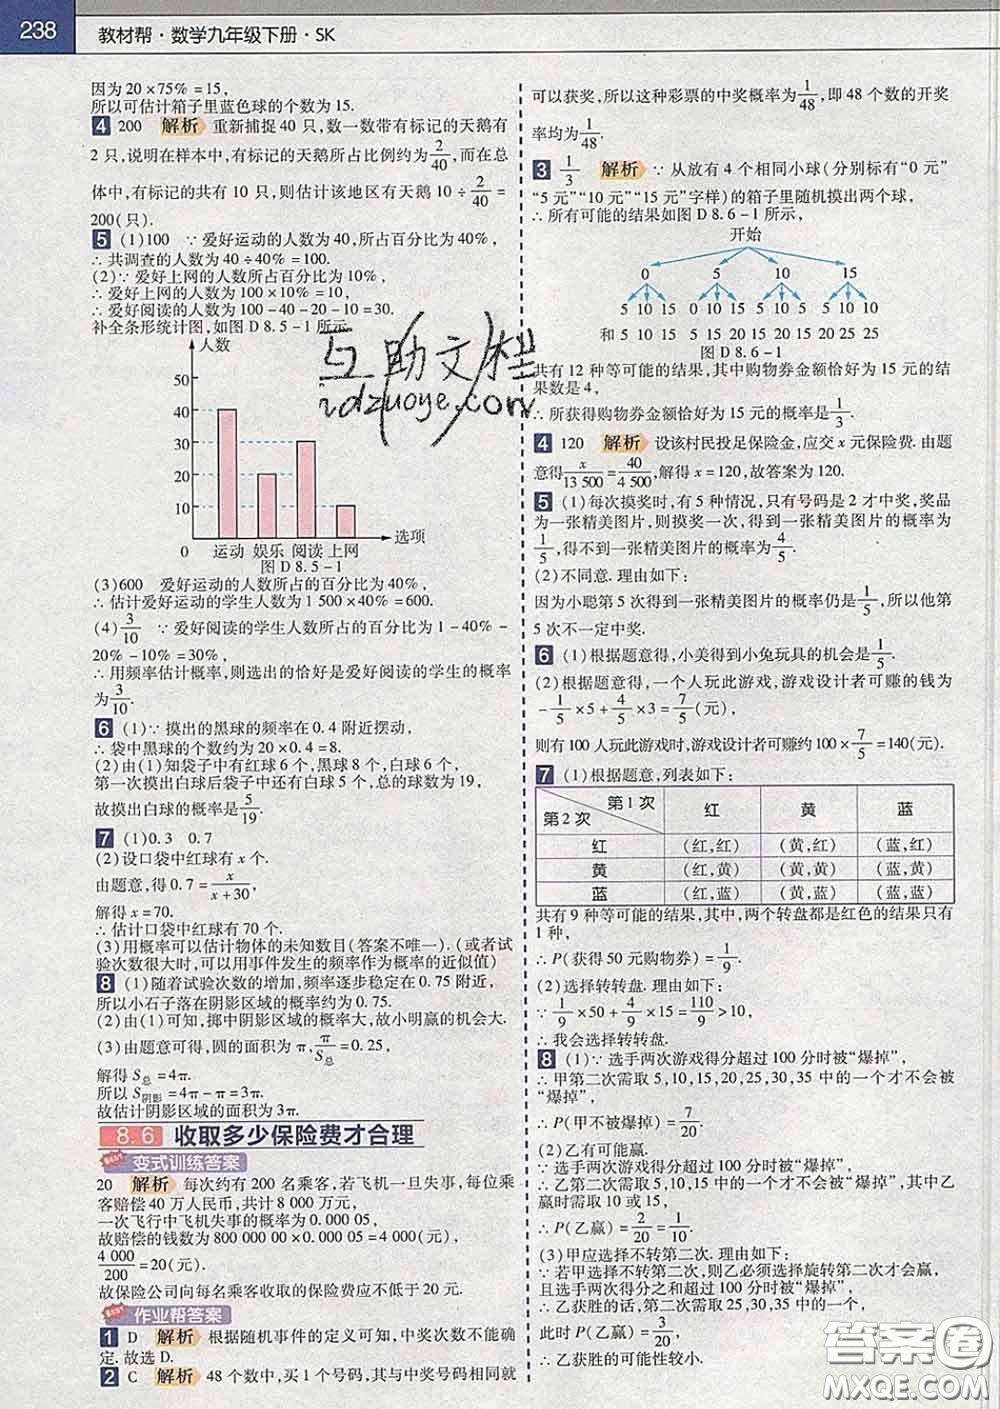 238
教材帮·数学九年级下册·SK
因为 20×75%=15,
所以可估计箱子里蓝色球的个数为 15.
4 200 解析 重新捕捉 40 只,数一数带有标记的天鹅有
2 只,说明在样本中,有标记的天鹅所占比例约为2/40,而在总
体中,有标记的共有 10 只,则估计该地区有天鹅 10÷2/40=
200(只).
5 (1)100 ∵爱好运动的人数为 40,所占百分比为 40%,
∴共调查的人数为 40÷40%=100.
(2)∵爱好上网的人数所占百分比为 10%,
∴爱好上网的人数为 100×10%=10,
∴爱好阅读的人数为 100-40-20-10=30.
补全条形统计图,如图 D8.5-1 所示
人数
50
40
30
20
10
0 运动 娱乐 阅读 上网 选项
图 D8.5-1
(3)600 ∵爱好运动的人数所占的百分比为 40%,
∴估计爱好运动的学生人数为 1 500×40%=600.
(4)3/10 ∵爱好阅读的学生人数所占的百分比为 1-40%-
20%-10%=30%,
∴用频率估计概率,则选出的恰好是爱好阅读的学生的概率
为3/10.
6 (1)∵摸出的黑球的频率在 0.4 附近摆动,
∴袋中黑球的个数约为 20×0.4=8.
(2)由(1)知袋子中有红球 6 个,黑球 8 个,白球 6 个,
第一次摸出白球后袋子中还有白球 5 个,总的球数为 19,
故摸出白球的概率是5/19.
7 (1)0.3 0.7
(2)设口袋中红球有 x 个.
由题意,得 0.7=x/(x+30),
解得 x=70.
∴估计口袋中红球有 70 个.
(3)用概率可以估计物体的未知数目(答案不唯一).(或者试
验次数很大时,可以用事件发生的频率作为概率的近似值)
8 (1)随着试验次数的增加,频率逐步稳定在 0.75 附近,
所以小石子落在阴影区域的概率约为 0.75.
(2)由(1)可知,掷中阴影区域的概率大,故小明赢的机会大.
(3)由题意可得,圆的面积为 π,π/S总=0.25,
解得 S总=4π.
所以 S阴影=4π-π=3π.
故估计阴影区域的面积为 3π.
8.6 收取多少保险费才合理
变式训练答案
20 解析 每次约有 200 名乘客,若飞机一旦失事,每位乘
客赔偿 40 万人民币,共计 8 000 万元,
一次飞行中飞机失事的概率为 0.000 05,
故赔偿的钱数为 800 000 00×0.000 05=4 000(元),
4 000/200=20(元).
故保险公司向每名乘客收取的保险费应不低于 20 元.
作业帮答案
1 D 解析 根据随机事件的定义可知,中奖次数不能确
定.故选 D.
2 C 解析 48 个数中,买 1 个号码,其与中奖号码相同就
可以获奖,所以这种彩票的中奖概率为1/48,即 48 个数的开奖
率均为1/48.
3 1/3 解析 ∵从放有 4 个相同小球(分别标有“0 元”
“5 元”“10 元”“15 元”字样)的箱子里随机摸出两个球,
∴所有可能的结果如图 D8.6-1 所示,
开始
0 5 10 15
5 10 15 0 10 15 0 5 15 0 5 10
和 5 10 15 5 15 20 10 15 25 15 20 25
图 D8.6-1
共有 12 种等可能的结果,其中购物券金额恰好为 15 元的结
果数是 4,
∴所获得购物券金额恰好为 15 元的概率是1/3.
4 120 解析 设该村民投足保险金,应交 x 元保险费.由题
意得x/13 500=40/4 500,解得 x=120,故答案为 120.
5 (1)每次摸奖时,有 5 种情况,只有号码是 2 才中奖,奖品
为一张精美图片,则摸奖一次,得到一张精美图片的概率为
1/5,得不到一张精美图片的概率为4/5.
(2)不同意.理由如下:
因为小聪第 5 次得到一张精美图片的概率仍是1/5,所以他第
5 次不一定中奖.
6 (1)根据题意得,小美得到小兔玩具的机会是1/5.
(2)根据题意得,一个人玩此游戏,游戏设计者可赚的钱为
-1/5×5+4/5×3=7/5(元),
则有 100 人玩此游戏时,游戏设计者可赚约 100×7/5=140(元).
7 (1)根据题意,列表如下:
第 1 次 第 2 次 红 黄 蓝
红 (红,红) (黄,红) (蓝,红)
黄 (红,黄) (黄,黄) (蓝,黄)
蓝 (红,蓝) (黄,蓝) (蓝,蓝)
共有 9 种等可能的结果,其中,两个转盘都是红色的结果只有
1 种,
∴P(获得 50 元购物券)=1/9.
(2)选择转转盘.理由如下:
∵1/9×50+4/9×15=110/9>10,
∴我会选择转转盘.
8 (1)∵选手两次游戏得分超过 100 分时被“爆掉”,
∴甲第二次需取 5,10,15,20,25,30,35 中的一个时被
“爆掉”,
∴P(甲不被爆掉)=7/20.
(2)乙有可能赢.
∵选手两次游戏得分超过 100 分时被“爆掉”,
∴乙第二次需取 5,10,15 中的一个时不被“爆掉”,其中乙
赢时需取 10 或 15,
∴P(乙赢)=2/20=1/10.
(3)甲应选择不转第二次.理由如下:
∵若甲选择不转第二次,则乙必须选择旋转第二次才会赢,
且选手两次得分之和超过 100 分时被“爆掉”,
∴乙获胜的话,第二次需取 25,30,35 中的一个,
此时 P(乙赢)=3/20,
∴乙获胜的可能性较小.
互助文档
hdzuoye.com
答案圈
MXQE.COM